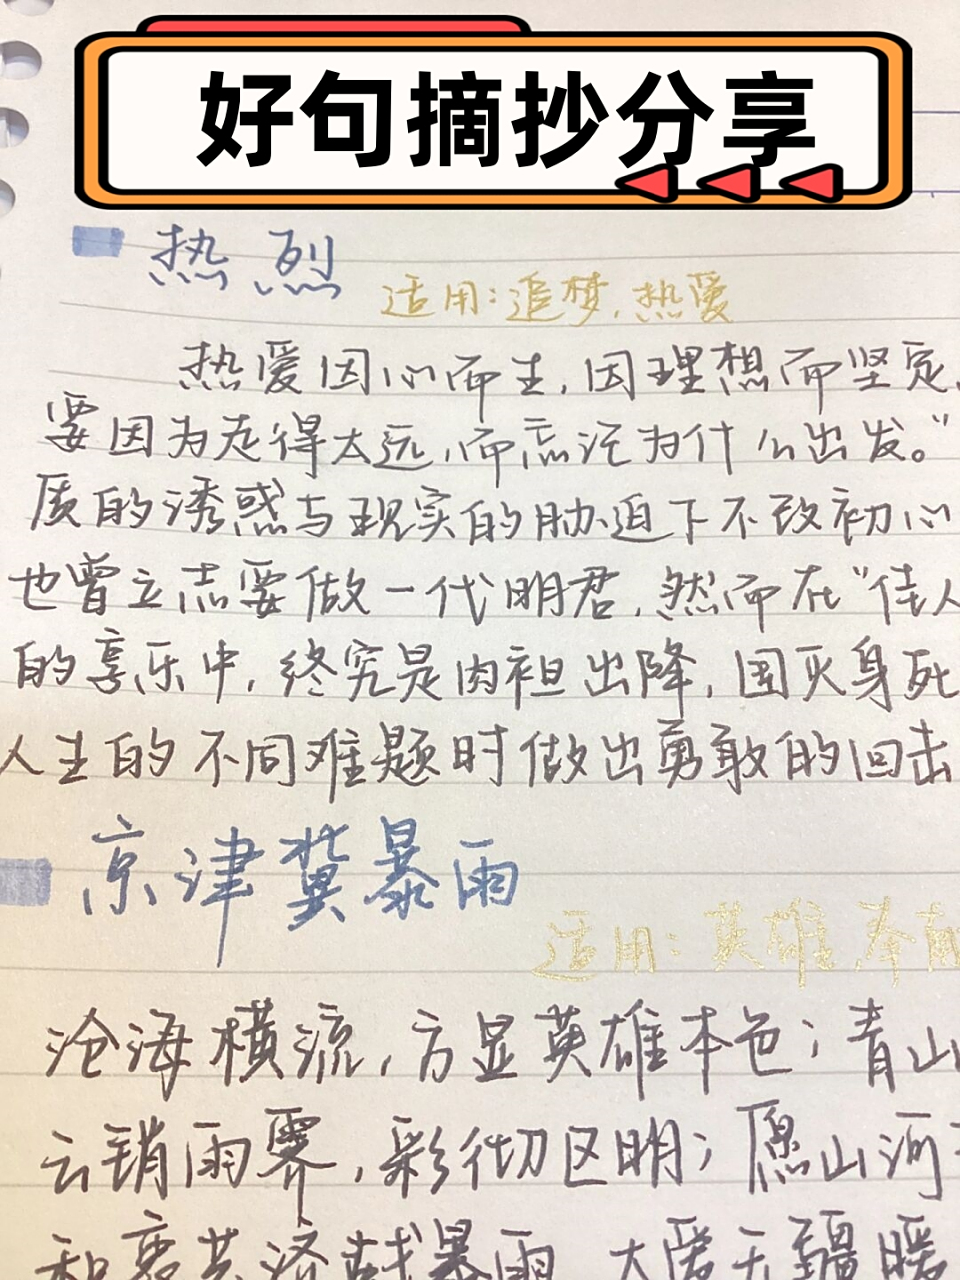 好句摘抄分享
热烈
适用:追梦,热爱
热爱因心而生,因理想而坚定,
要因为走得太远,而忘记为什么出发。”
质的诱惑与现实的胁迫下不改初心
也曾立志要做一代明君,然而在“佳人
的享乐中,终究是肉袒出降,国灭身死
人生的不同难题时做出勇敢的回击
京津冀暴雨
适用:英雄,奉献
沧海横流,方显英雄本色;青山
云销雨霁,彩彻区明;愿山河
和衷共济战暴雨,大爱无疆暖